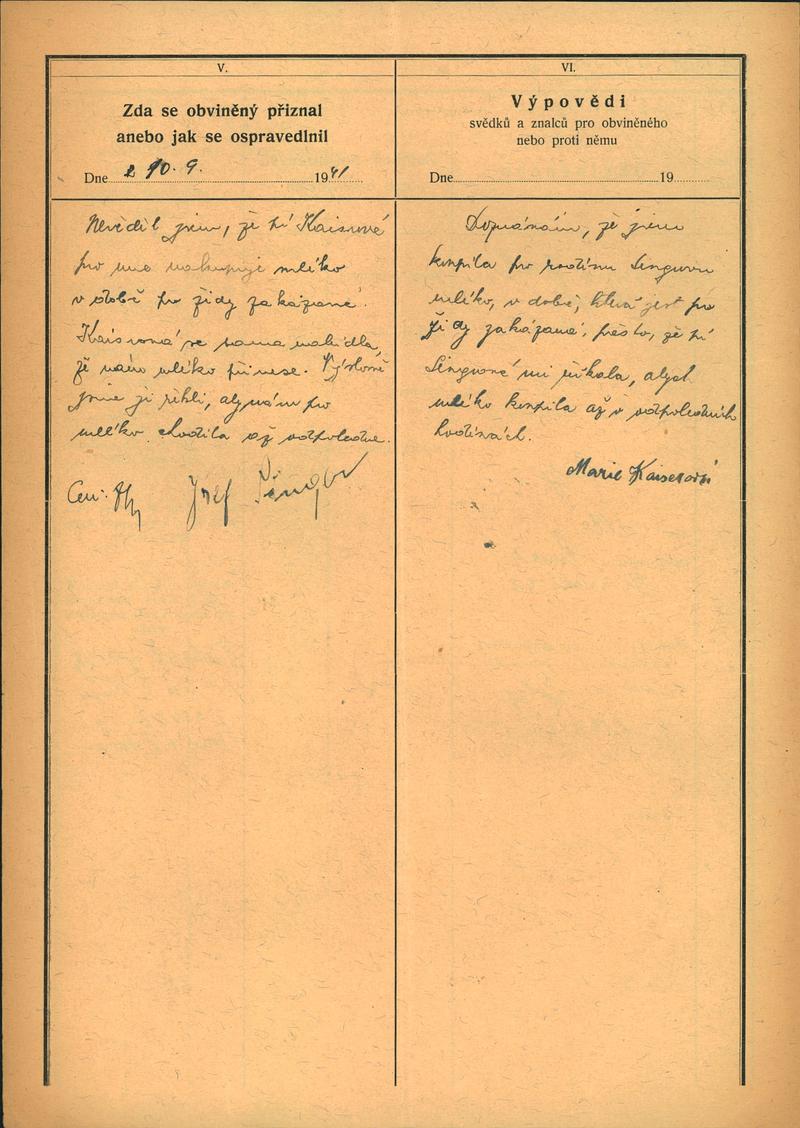 V.
Zda se obviněný přiznal
anebo jak se ospravedlnil
Dne 10. 9. 1941
Nevěděl jsem, že pí Kaisrová
pro mne nakupuje mléko
v době pro židy zakázané.
Kaisrová se sama nabídla,
že nám mléko přinese. Výslovně
jsme jí řekli, aby nám pro
mléko chodila až odpoledne.
Josef
VI.
Výpovědi
svědků a znalců pro obviněného
nebo proti němu
Dne 19
Doznávám, že jsem
koupila pro rodinu Singrovu
mléko, v době, která jest pro
židy zakázaná, přesto, že pí
Singrová mi říkala, abych
mléko koupila až v odpoledních
hodinách.
Marie Kaiserová